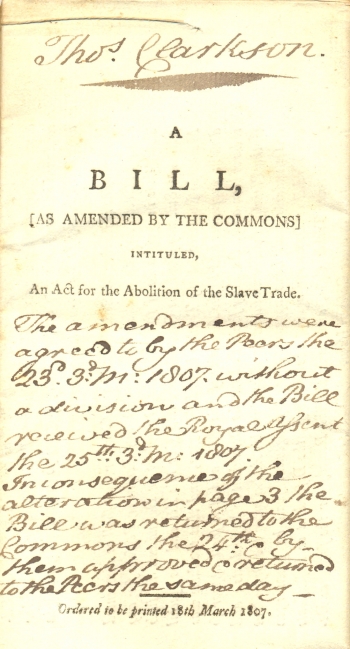 Thos. Clarkson.
A
BILL,
[AS AMENDED BY THE COMMONS]
INTITULED,
An Act for the Abolition of the Slave Trade.
The amendments were
agreed to by the Peers the
23d. 3d. M: 1807. without
a division and the Bill
received the Royal Assent
the 25th. 3d. M: 1807.
In consequence of the
alteration in page 3 the
Bill was returned to the
Commons the 24th. & by
them approved & returned
to the Peers the same day —
Ordered to be printed 18th March 1807.